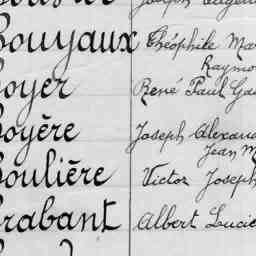 Joseph Eugène
Bouyaux Théophile Mar
Raymo
Boyer René Paul Ga
Boyère Joseph Alexan
Jean M
Boulière Victor Joseph
Brabant Albert Lucie